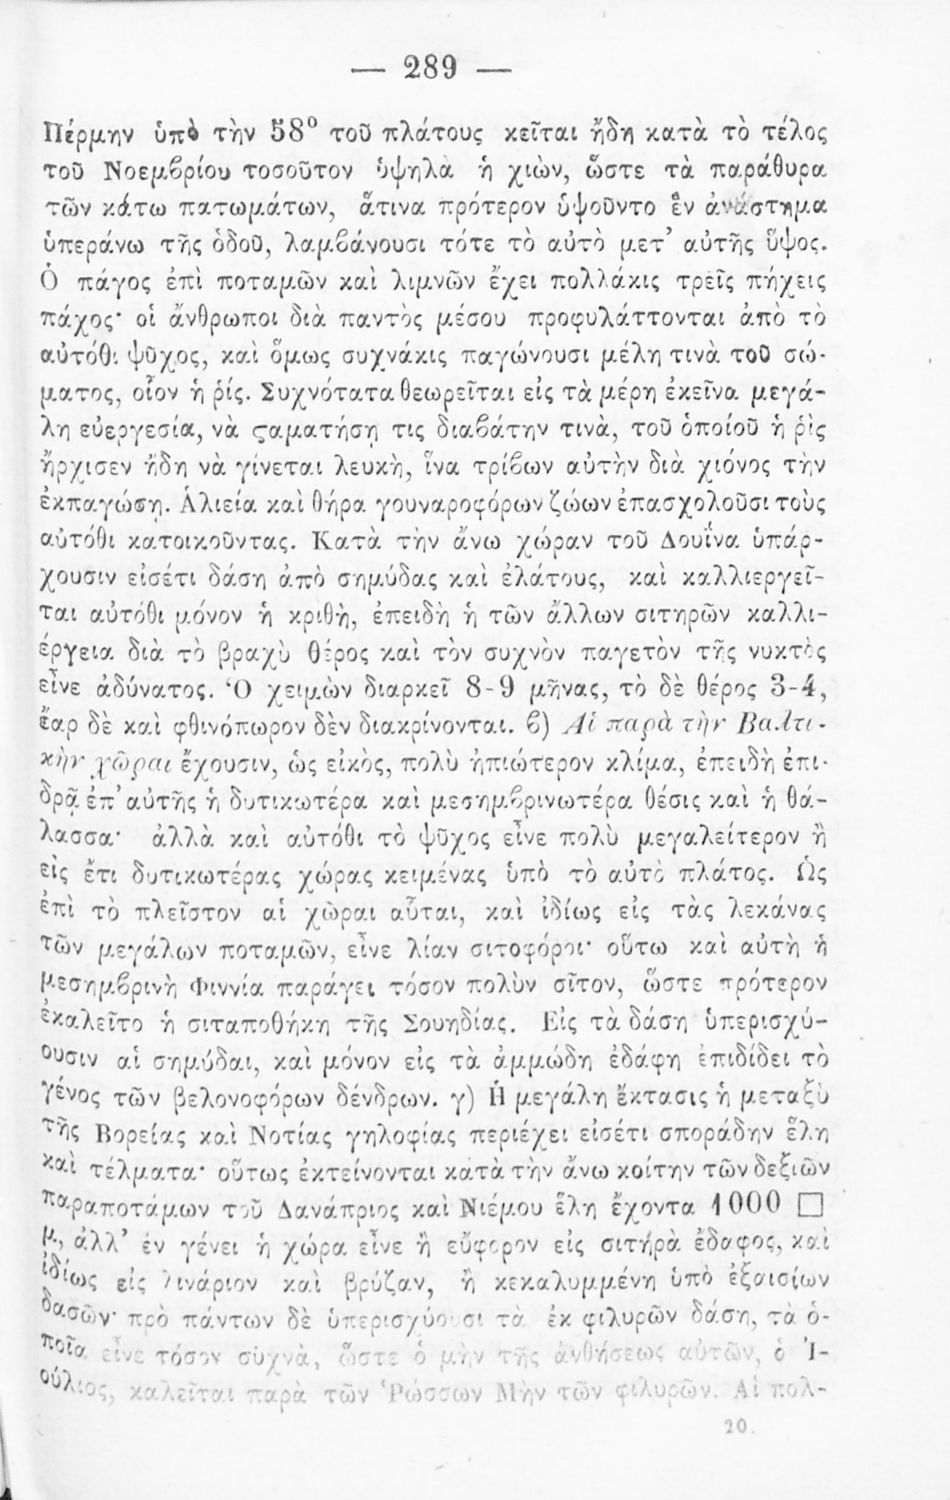 — 289 —
Πέρμην ὑπὸ τὴν 58° τοῦ πλάτους κεῖται ἤδη κατὰ τὸ τέλος
τοῦ Νοεμβρίου τοσοῦτον ὑψηλὰ ἡ χιὼν, ὥστε τὰ παράθυρα
τῶν κάτω πατωμάτων, ἅτινα πρότερον ὑψοῦντο ἓν ἀνάστημα
ὑπεράνω τῆς ὁδοῦ, λαμβάνουσι τότε τὸ αὐτὸ μετ’ αὐτῆς ὕψος.
Ὁ πάγος ἐπὶ ποταμῶν καὶ λιμνῶν ἔχει πολλάκις τρεῖς πήχεις
πάχος· οἱ ἄνθρωποι διὰ παντὸς μέσου προφυλάττονται ἀπὸ τὸ
αὐτόθι ψῦχος, καὶ ὅμως συχνάκις παγώνουσι μέλη τινὰ τοῦ σώ-
ματος, οἷον ἡ ῥίς. Συχνότατα θεωρεῖται εἰς τὰ μέρη ἐκεῖνα μεγά-
λη εὐεργεσία, νὰ ϛαματήσῃ τις διαβάτην τινὰ, τοῦ ὁποίοῦ ἡ ῥὶς
ἤρχισεν ἤδη νὰ γίνεται λευκὴ, ἵνα τρίβων αὐτὴν διὰ χιόνος τὴν
ἐκπαγώσῃ. Ἁλιεία καὶ θήρα γουναροφόρων ζώων ἐπασχολοῦσι τοὺς
αὐτόθι κατοικοῦντας. Κατὰ τὴν ἄνω χώραν τοῦ Δουΐνα ὑπάρ-
χουσιν εἰσέτι δάση ἀπὸ σημύδας καὶ ἐλάτους, καὶ καλλιεργεῖ-
ται αὐτόθι μόνον ἡ κριθὴ, ἐπειδὴ ἡ τῶν ἄλλων σιτηρῶν καλλι-
έργεια διὰ τὸ βραχὺ θέρος καὶ τὸν συχνὸν παγετὸν τῆς νυκτὸς
εἶνε ἀδύνατος. Ὁ χειμὼν διαρκεῖ 8-9 μῆνας, τὸ δὲ θέρος 3-4,
ἔαρ δὲ καὶ φθινόπωρον δὲν διακρίνονται. β) Αἱ παρὰ τὴν Βαλτι-
κὴν χῶραι ἔχουσιν, ὡς εἰκὸς, πολὺ ἠπιώτερον κλίμα, ἐπειδὴ ἐπι-
δρᾷ ἐπ’ αὐτῆς ἡ δυτικωτέρα καὶ μεσημβρινωτέρα θέσις καὶ ἡ θά-
λασσα· ἀλλὰ καὶ αὐτόθι τὸ ψῦχος εἶνε πολὺ μεγαλείτερον ἢ
εἰς ἔτι δυτικωτέρας χώρας κειμένας ὑπὸ τὸ αὐτὸ πλάτος. Ὡς
ἐπὶ τὸ πλεῖστον αἱ χῶραι αὗται, καὶ ἰδίως εἰς τὰς λεκάνας
τῶν μεγάλων ποταμῶν, εἶνε λίαν σιτοφόροι· οὕτω καὶ αὐτὴ ἡ
μεσημβρινὴ Φιννία παράγει τόσον πολὺν σῖτον, ὥστε πρότερον
ἐκαλεῖτο ἡ σιταποθήκη τῆς Σουηδίας. Εἰς τὰ δάση ὑπερισχύ-
ουσιν αἱ σημύδαι, καὶ μόνον εἰς τὰ ἀμμώδη ἐδάφη ἐπιδίδει τὸ
γένος τῶν βελονοφόρων δένδρων. γ) Ἡ μεγάλη ἔκτασις ἡ μεταξὺ
τῆς Βορείας καὶ Νοτίας γηλοφίας περιέχει εἰσέτι σποράδην ἕλη
καὶ τέλματα· οὕτως ἐκτείνονται κατὰ τὴν ἄνω κοίτην τῶν δεξιῶν
παραποτάμων τοῦ Δανάπριος καὶ Νιέμου ἕλη ἔχοντα 1000 □
μ, ἀλλ’ ἐν γένει ἡ χώρα εἶνε ἢ εὔφορον εἰς σιτήρὰ ἔδαφος, καὶ
ἰδίως εἰς λινάριον καὶ βρύζαν, ἢ κεκαλυμμένη ὑπὸ ἐξαισίων
δασῶν· πρὸ πάντων δὲ ὑπερισχύουσι τὰ ἐκ φιλυρῶν δάση, τὰ ὁ-
ποῖα εἶνε τόσον συχνὰ, ὥστε ὁ μὴν τῆς ἀνθήσεως αὐτῶν, ὁ Ἰ-
ούλιος, καλεῖται παρὰ τῶν Ῥώσσων Μὴν τῶν φιλυρῶν. Αἱ πολ-
20.